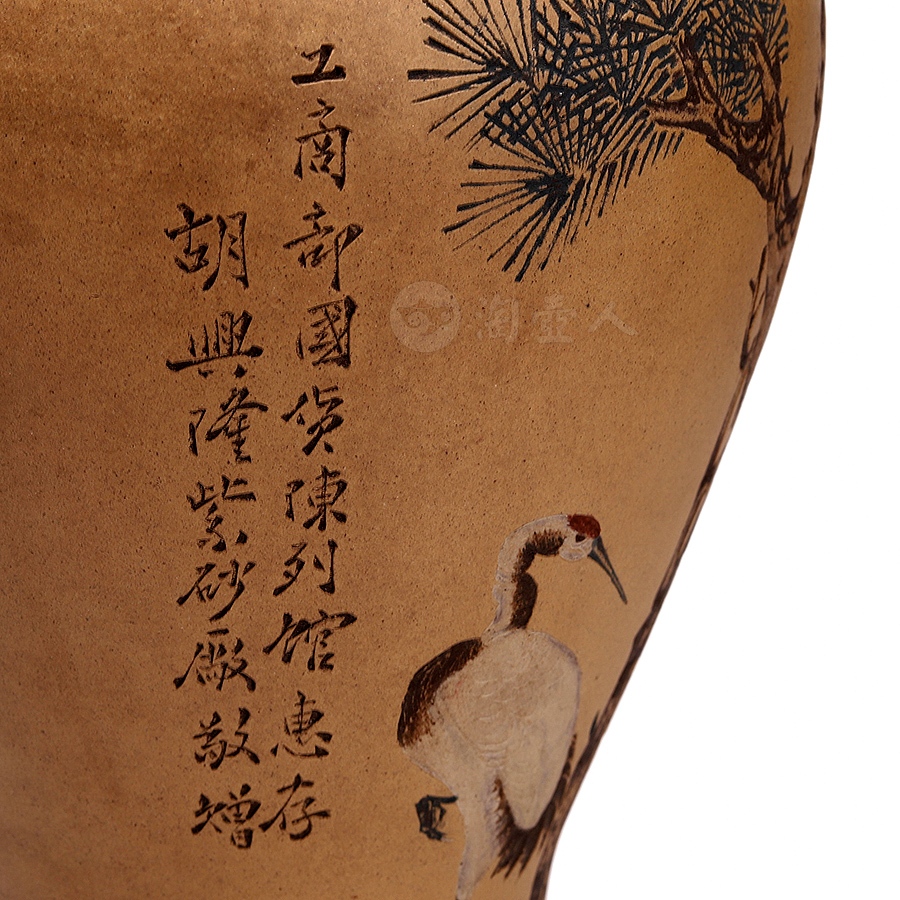 工商部國货陳列馆惠存
胡興隆紫砂廠敬增
阅壶人